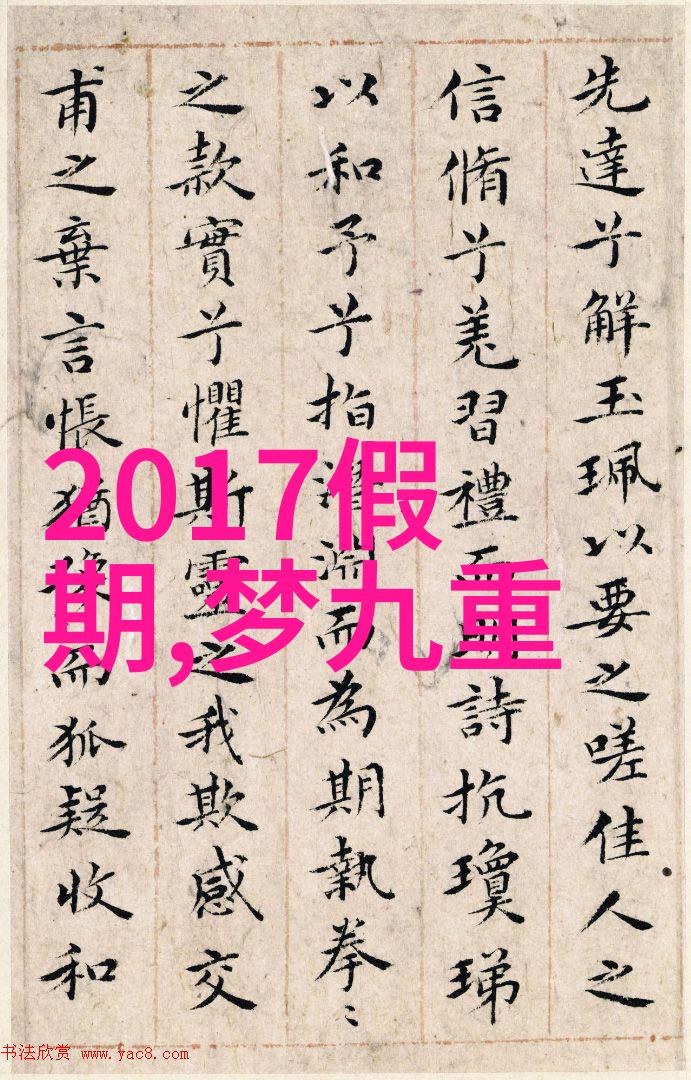 先達兮解玉珮以要之嗟佳人之
信脩兮羌習禮而明詩抗瓊珶
以和予兮指潛淵而為期執拳〻
之款實兮懼斯靈之我欺感交
甫之棄言悵猶豫而狐疑收和
2017假
期,梦九重
书法欣赏 www.yac8.com